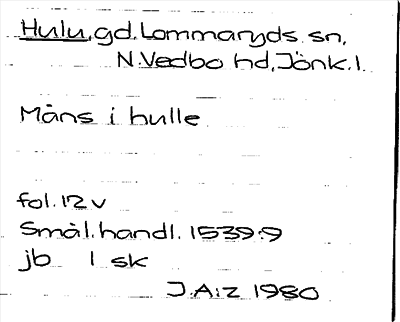 Hulu, gd. Lommaryds sn,
N. Vedbo hd, Jönk. l.
Måns i hulle
fol. 12 v
Smål. handl. 1539:9
jb 1 sk
J.A:z 1980